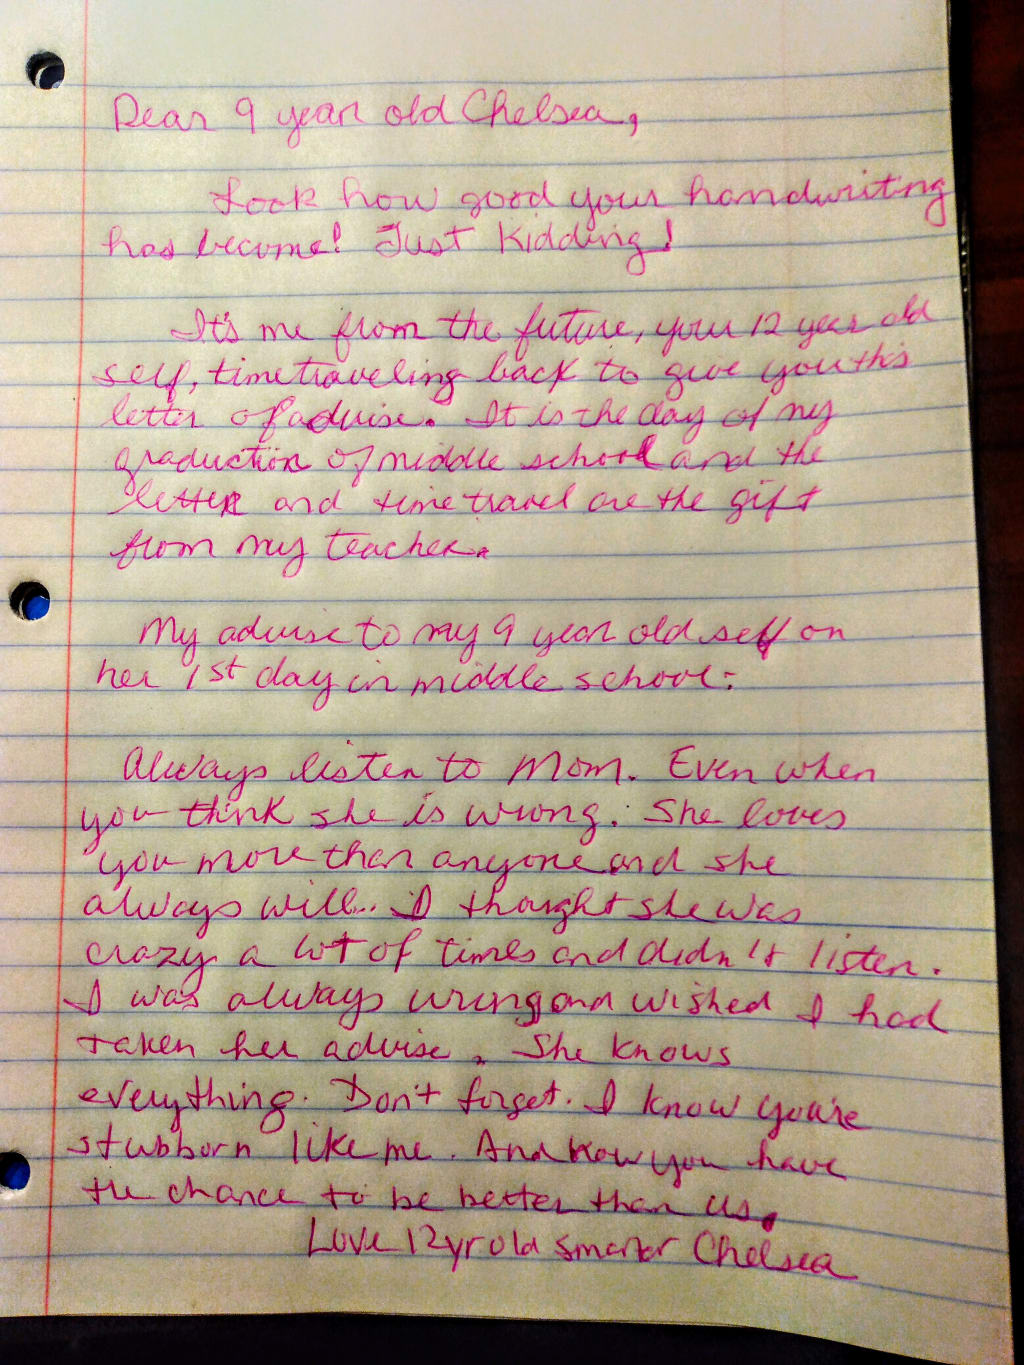 Dear 9 year old Chelsea,
Look how good your handwriting
has become! Just Kidding!
It's me from the future, your 12 year old
self, timetraveling back to give you this
letter of advise. It is the day of my
graduction of middle school and the
letter and time travel are the gift
from my teacher.
My advise to my 9 year old self on
her 1st day in middle school:
Always listen to Mom. Even when
you think she is wrong. She loves
you more than anyone and she
always will.. I thought she was
crazy a lot of times and didn't listen.
I was always wrong and wished I had
taken her advise. She knows
everything. Don't forget. I know you're
stubborn like me. And now you have
the chance to be better than us.
Love 12 yr old smarter Chelsea